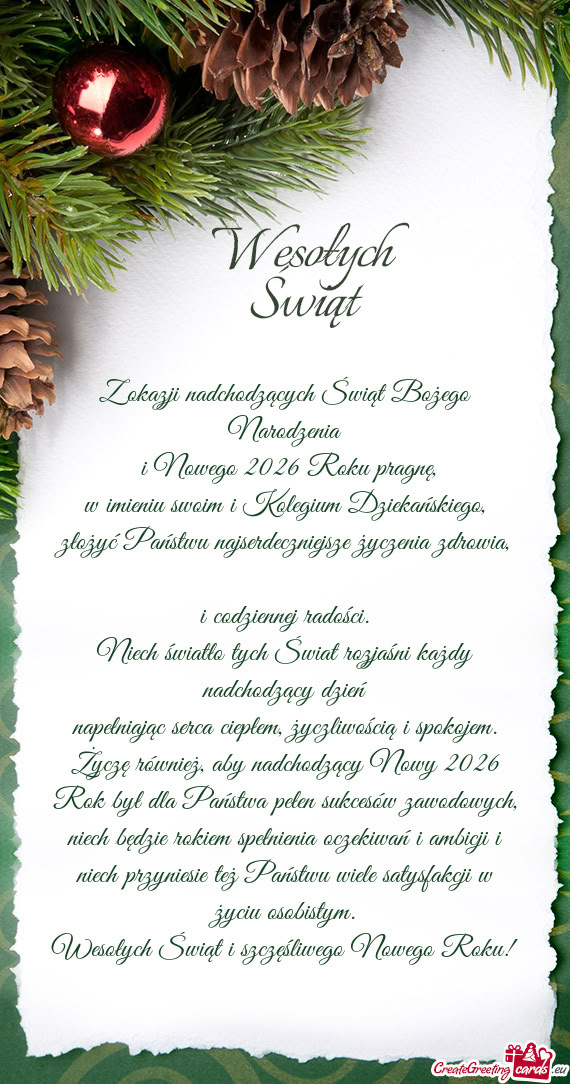 Wesołych
Świąt
Zokazji nadchodzących Świąt Bożego
Narodzenia
i Nowego 2026 Roku pragnę,
w imieniu swoim i Kolegium Dziekańskiego,
złożyć Państwu najserdeczniejsze życzenia zdrowia,
i codziennej radości.
Niech światło tych Świat rozjaśni każdy
nadchodzący dzień
napełniając serca ciepłem, życzliwością i spokojem.
Życzę również, aby nadchodzący Nowy 2026
Rok był dla Państwa pełen sukcesów zawodowych,
niech będzie rokiem spełnienia oczekiwań i ambicji i
niech przyniesie też Państwu wiele satysfakcji w
życiu osobistym.
Wesołych Świąt i szczęśliwego Nowego Roku!
CreateGreetingcards.eu